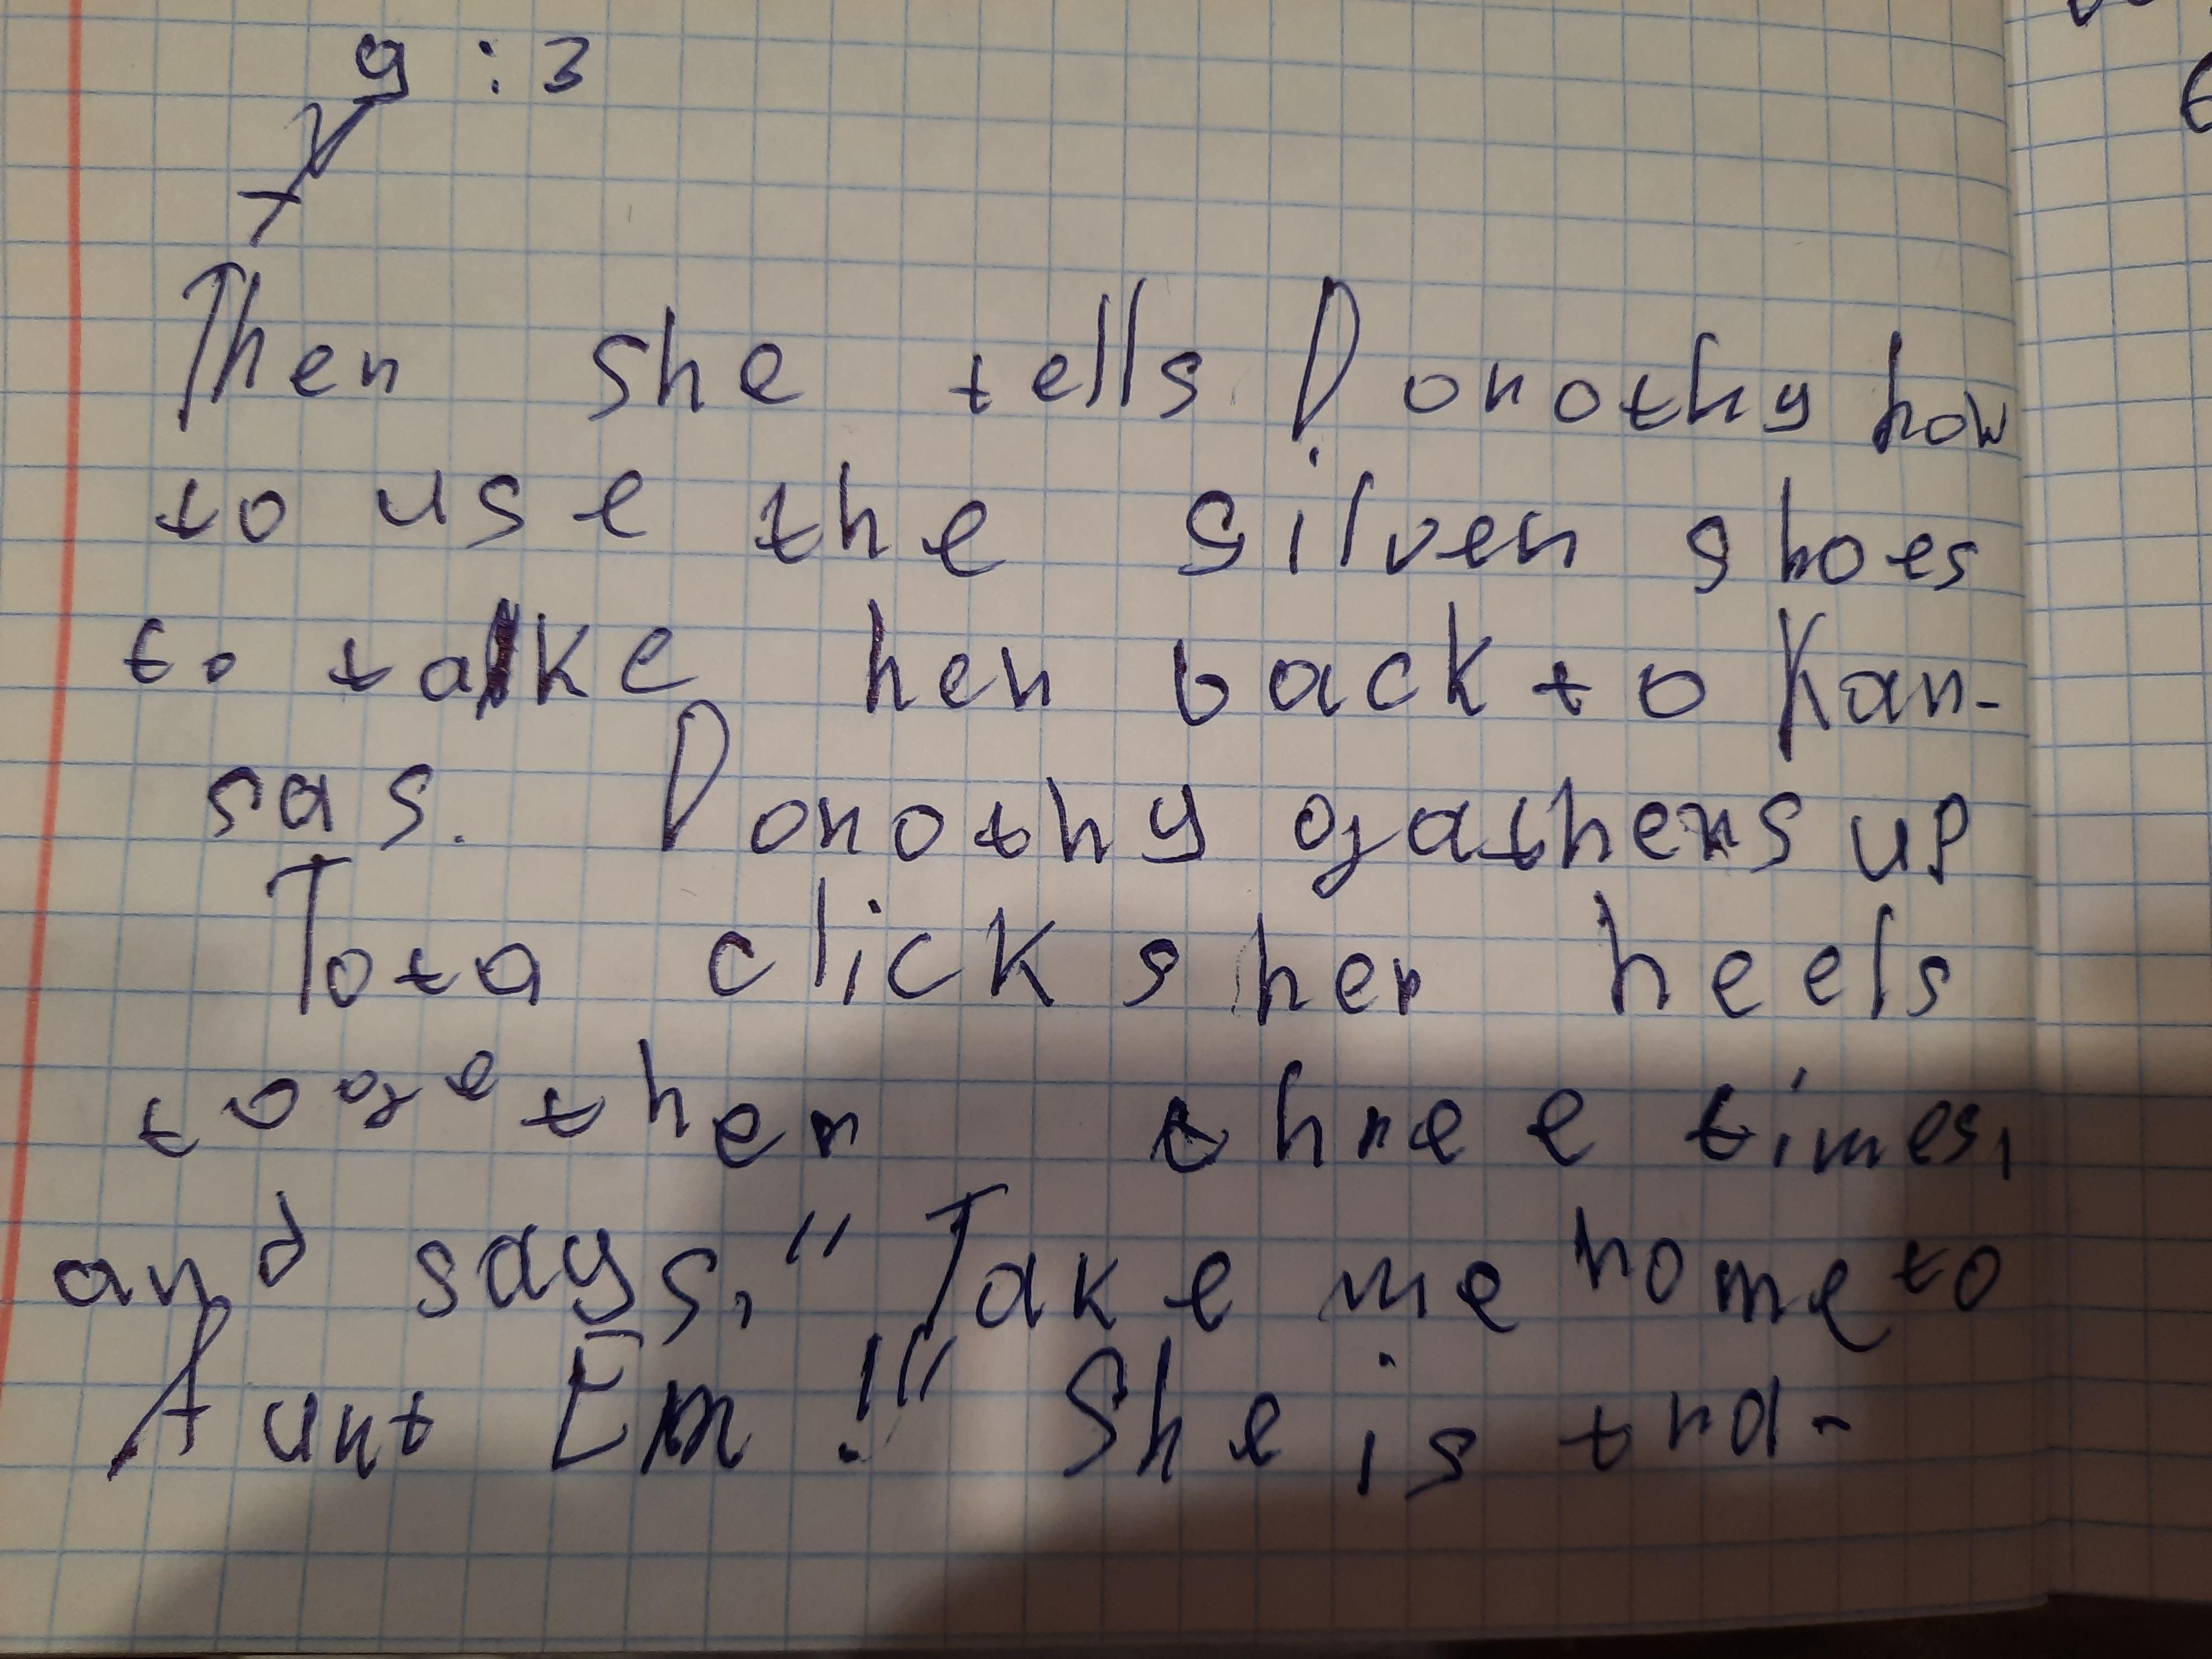 9 : 3
Then she tells Dorothy how
to use the silver shoes
to take her back to Kan-
sas. Dorothy gathers up
Tota clicks her heels
together three times,
and says, "Take me home to
Aunt Em!" She is tra-